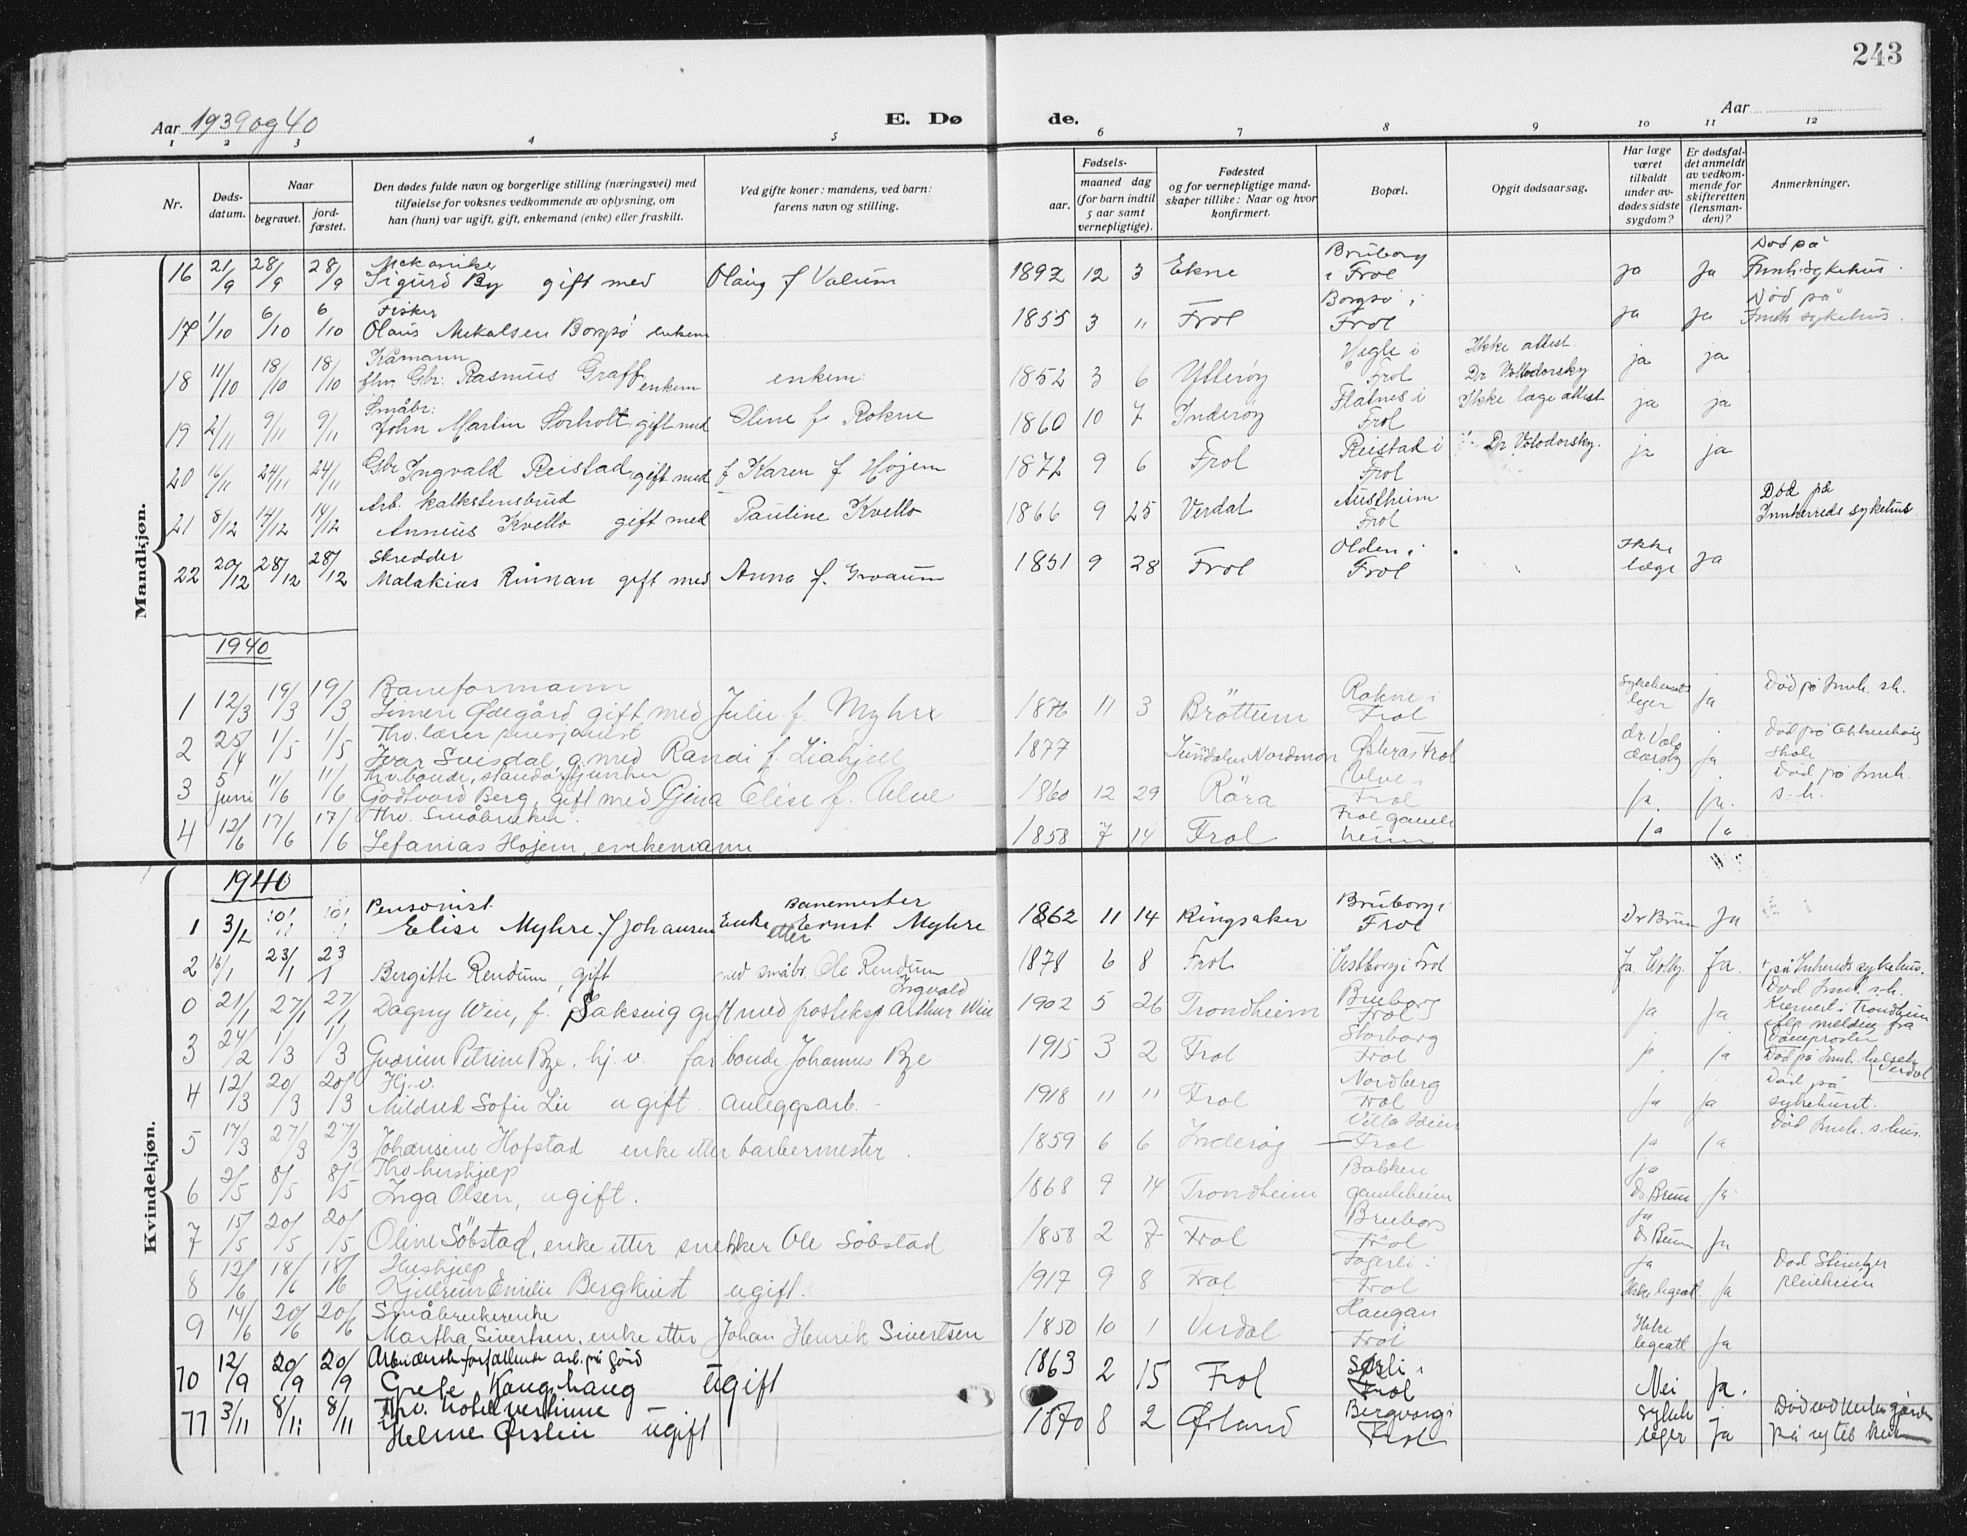 243
Aar 1939 og 40
E. Dø de.
Aar
1 2 3 4 5 6 7 8 9 10 11 12
Nr.
Døds-
datum.
Naar
begravet.
jord-
fæstet.
Den dødes fulde navn og borgerlige stilling (næringsvei) med
tilføielse for voksnes vedkommende av oplysning, om
han (hun) var ugift, gift, enkemand (enke) eller fraskilt.
Ved gifte koner: mandens, ved barn:
farens navn og stilling.
Fødsels-
aar.
maaned dag
(for barn indtil
5 aar samt
vernepligtige).
Fødested
og for vernepligtige mand-
skaper tillike: Naar og hvor
konfirmert.
Bopæl.
Opgit dødsaarsag.
Har læge
været
tilkaldt
under av-
dødes sidste
sygdom?
Er dødsfal-
det anmeldt
av vedkom-
mende for
skifteretten
(lensman-
den)?
Anmerkninger.
Mandkjøn.
Mekaniker Brüborg Død på
16 21/9 28/9 28/9 Sigurd By gift med Olaug f Valum 1892 12 3 Ekne i Frol ja ja Innh. sykehus.
Fisker Borgsø i Død på
17 1/10 6/10 6/10 Olaus Mekalsen Borgsø enkem 1855 3 11 Frol Frol ja ja Innh sykehus.
Kåmann Vegle i Ikke attest.
18 11/10 18/10 18/10 fhv. Gbr. Rasmus Graff enkem enkem. 1852 3 6 Ytterøy Frol Dr Volodorsky ja ja
Småbr: Flatnes i Ikke læge attest
19 2/11 9/11 9/11 John Martin Sorholt gift med Eline f. Rokne 1860 10 7 Inderøy Frol ja ja
20 16/11 24/11 24/11 Gbr Ingvald Reistad gift med f Karen f Højem 1872 9 6 Frol Reistad i Frol Dr Volodorsky. ja ja
Arb. kalkstensbrud Austheim Død på
21 8/12 14/12 14/12 Anneus Kvello gift med Pauline Kvello 1866 9 25 Verdal Frol Innherreds sykehus
Skredder Olden i Ikke
22 20/12 28/12 28/12 Malakias Rinnan gift med Anna f. Gravaum 1851 9 28 Frol Frol læge ja
1940
Baneformann Rokne i Sykehusets Død på Innh. sh.
1 12/3 19/3 19/3 Simen Ødegård, gift med Julie f. Myhre 1876 11 3 Brøttum Frol leger ja
Thv. lærer pensjonist dr. Volo
2 25/4 1/5 1/5 Ivar Svisdal g. med Randi f. Liahjell 1877 Sunndalen Nordmøre Østerås Frol darsky ja skole
Ulve i Død på Innh.
3 5 juni 11/6 11/6 Godtvard Berg, gift med Gjina Elise f. Ulve 1860 12 29 Røra Frol ja. ja. s.h.
Thv. Småbruker. Frol gamle
4 12/6 17/6 17/6 Sefanias Hojem, enkemann 1858 7 14 Frol heim ja ja
Kvindekjøn.
1940
Pensonist. Banemester Brüborg i
1 3/1 10/1 10/1 Elise Myhre f Johansen Enke etter Ernst Myhre 1862 11 14 Ringsaker Frol Dr Brun Ja
2 16/1 23/1 23/1 Bergitte Rendum, gift med småbr. Ole Rendum 1878 6 8 Frol Vestborg i Frol Ja Ja. på Inherreds sykehus.
Ingvald Bruborg Død Innh. s.h.
0 21/1 27/1 27/1 Dagny Wiu, f. Saksvig gift med posteksp Arthur Wiu 1902 5 26 Trondheim Frol ja ja Kremert i Trondheim
iflg. melding fra
Storborg Domeprosten
3 24/2 1/3 1/3 Gudrun Petrine Bye. hj. v. far bonde Johannes Bye 1915 3 2 Frol Frol ja ja Død på Innh. helseh. Verdal
Hj. v. Nordberg Død på
4 12/3 20/3 20/3 Mildred Sofie Lie ugift anleggsarb. 1918 11 11 Frol Frol ja ja sykehuset.
Villa Død Innh. s.hus.
5 17/3 27/3 27/3 Johansine Hofstad enke etter barbermester. 1859 6 6 Inderøy Frol ja ja
Thv. hushjelp Bakken ja
6 2/5 8/5 8/5 Inga Olsen, ugift. 1868 9 14 Trondheim gamleheim Dr Brun ja
Bruborg ja
7 15/5 20/5 20/5 Oline Söbstad, enke etter snekker Ole Söbstad 1858 2 7 Frol Frol Dr Brun ja
Hushjelp Fagerli i ja Død Steinkjer
8 12/6 18/6 18/6 Kjellrun Emilie Bergkvist ugift. 1917 9 8 Frol Frol Ikke legeatt. ja pleieheim
Småbrukerenke Haugan Ikke
9 14/6 20/6 20/6 Martha Sivertsen, enke etter Johan Henrik Sivertsen 1850 10 1 Verdal Frol legeatt ja
arb. på gård Sørli i
10 12/9 20/9 20/9 Grete Kangshaug ugift 1863 2 15 Frol Frol Nei ja.
Thv. hotellvertinne Bergvang i sykeh
11 3/11 8/11 8/11 Helene Ørslien ugift 1870 8 2 Ørland Frol leger Ja